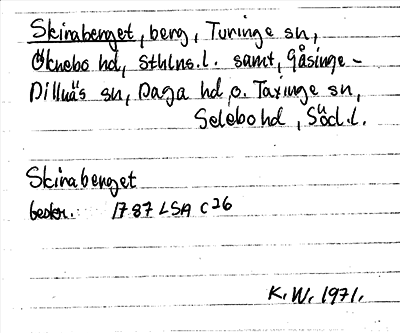 Skiraberget, berg, Turinge sn,
Öknebo hd, Sthlns.l. samt, Gåsinge-
Dillnäs sn, Daga hd o. Taxinge sn,
Selebo hd, Söd.l.
Skiraberget
beskr. 1787 LSA C26
K.W. 1971.